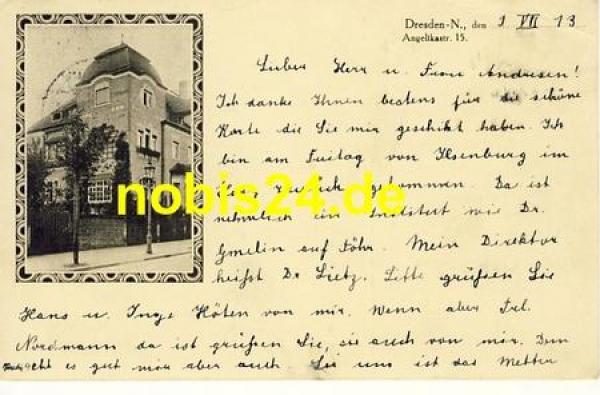 Dresden-N., den 9 VII 13
Angelikastr. 15.
Lieber Herr u. Frau Andresen!
Ich danke Ihnen bestens für die schöne
Karte die Sie mir geschikt haben. Ich
bin am Freitag von Ilsenburg im
gekommen. Da ist
nobis24.de
nehmlich ein Institut wie Dr.
Gmelin auf Föhr. Mein Direktor
heißt Dr. Lietz. Bitte grüßen Sie
Hans u. Inge Höten von mir. Wenn aber Frl.
Nordmann da ist grüßen Sie, sie auch von mir. Dem
es gut mir aber auch. Sie uns ist das Wetter